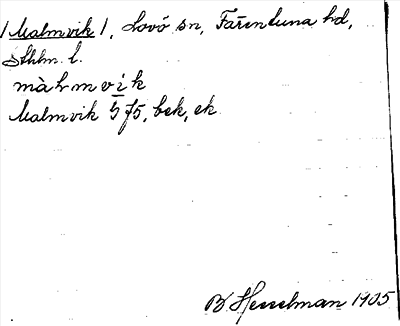 /Malmvik/, Lovö sn, Färentuna hd,
Sthlm. l.
màlmvik
Malmvik 5 f5, bek, ek.
B. Hesselman 1905